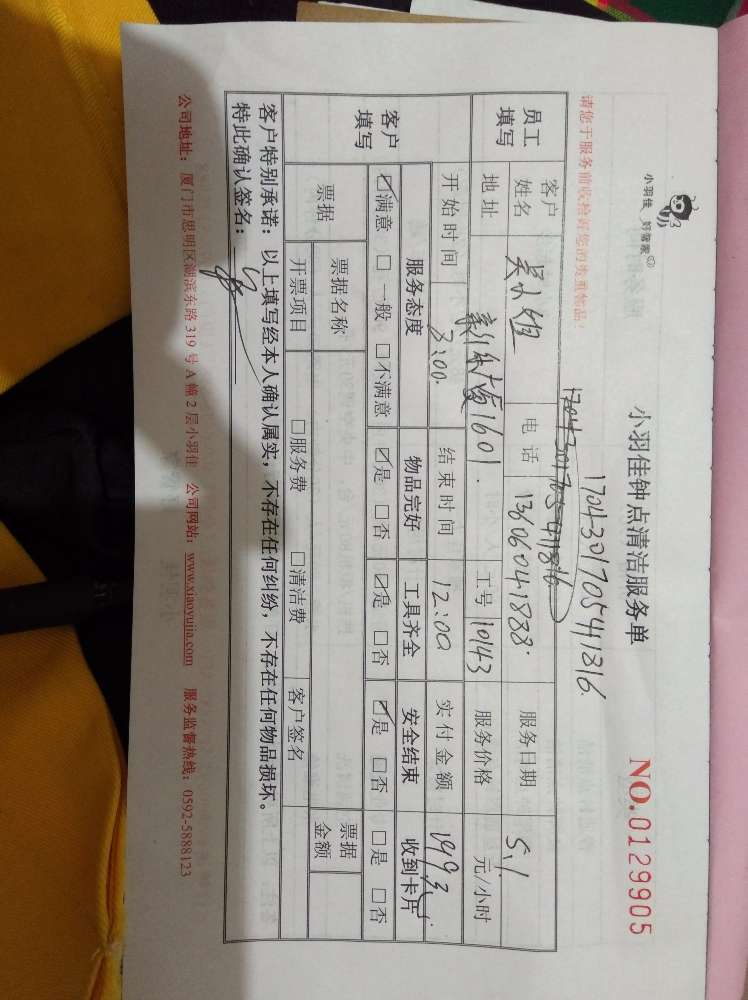 小羽佳 好管家
小羽佳钟点清洁服务单
NO.0129905
1704301705441816.
请您于服务前收检好您的贵重物品!
员工填写
客户姓名
电话 13606041888.
服务日期 5.1
地址
1601.
工号 10143
服务价格
元/小时
开始时间 3:00.
结束时间 12:00
实付金额
客户填写
服务态度 物品完好 工具齐全 安全结束 收到卡片
☑满意 □一般 □不满意 ☑是 □否 ☑是 □否 ☑是 □否 □是 □否
票据 票据名称
票据金额
开票项目 □服务费 □清洁费 客户签名
客户特别承诺:以上填写经本人确认属实,不存在任何纠纷,不存在任何物品损坏。
特此确认签名:
公司地址:厦门市思明区湖滨东路319号A幢2层小羽佳 公司网站:www.xiaoyujia.com 服务监督热线:0592-5888123